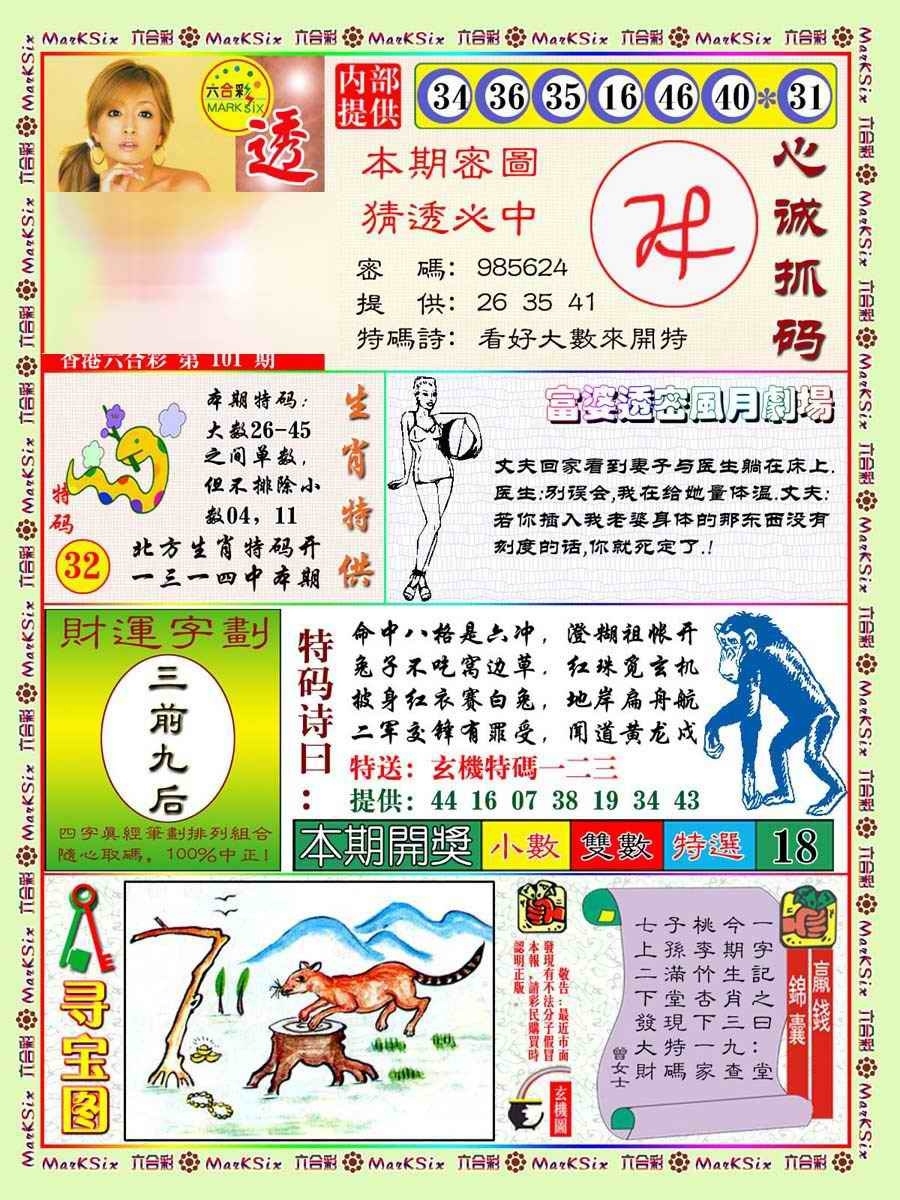 MarKSix 六合彩 MarKSix 六合彩 MarKSix 六合彩 MarKSix 六合彩 MarKSix 六合彩
六合彩
MARK SIX
透
内部
提供
34 36 35 16 46 40 * 31
本期密圖
猜透必中
密 碼: 985624
提 供: 26 35 41
特碼詩: 看好大數來開特
心诚抓码
香港六合彩 第 101 期
特码
32
本期特码:
大数26-45
之间单数,
但不排除小
数04, 11
北方生肖特码开
一三一四中本期
生肖特供
富婆透密風月劇場
丈夫回家看到妻子与医生躺在床上.
医生:别误会,我在给她量体温.丈夫:
若你插入我老婆身体的那东西没有
刻度的话,你就死定了.!
財運字劃
三前九后
四字真經筆劃排列組合
隨心取碼, 100%中正!
特码诗曰:
命中八格是六冲, 澄糊祖帐开
兔子不吃窝边草, 红珠觅玄机
披身红衣赛白兔, 地岸扁舟航
二军交锋有罪受, 闻道黄龙戍
特送: 玄機特碼一二三
提供: 44 16 07 38 19 34 43
本期開獎 小數 雙數 特選 18
寻宝图
敬告:最近市面
發現有不法分子假冒
本報,請彩民購買時
認明正版。
玄機圖
贏錢
錦囊
一字記之曰:堂
今期生肖三九查
桃李竹杏下一家
子孫滿堂現特碼
七上二下發大財
曾女士
MarKSix 六合彩 MarKSix 六合彩 MarKSix 六合彩 MarKSix 六合彩 MarKSix 六合彩